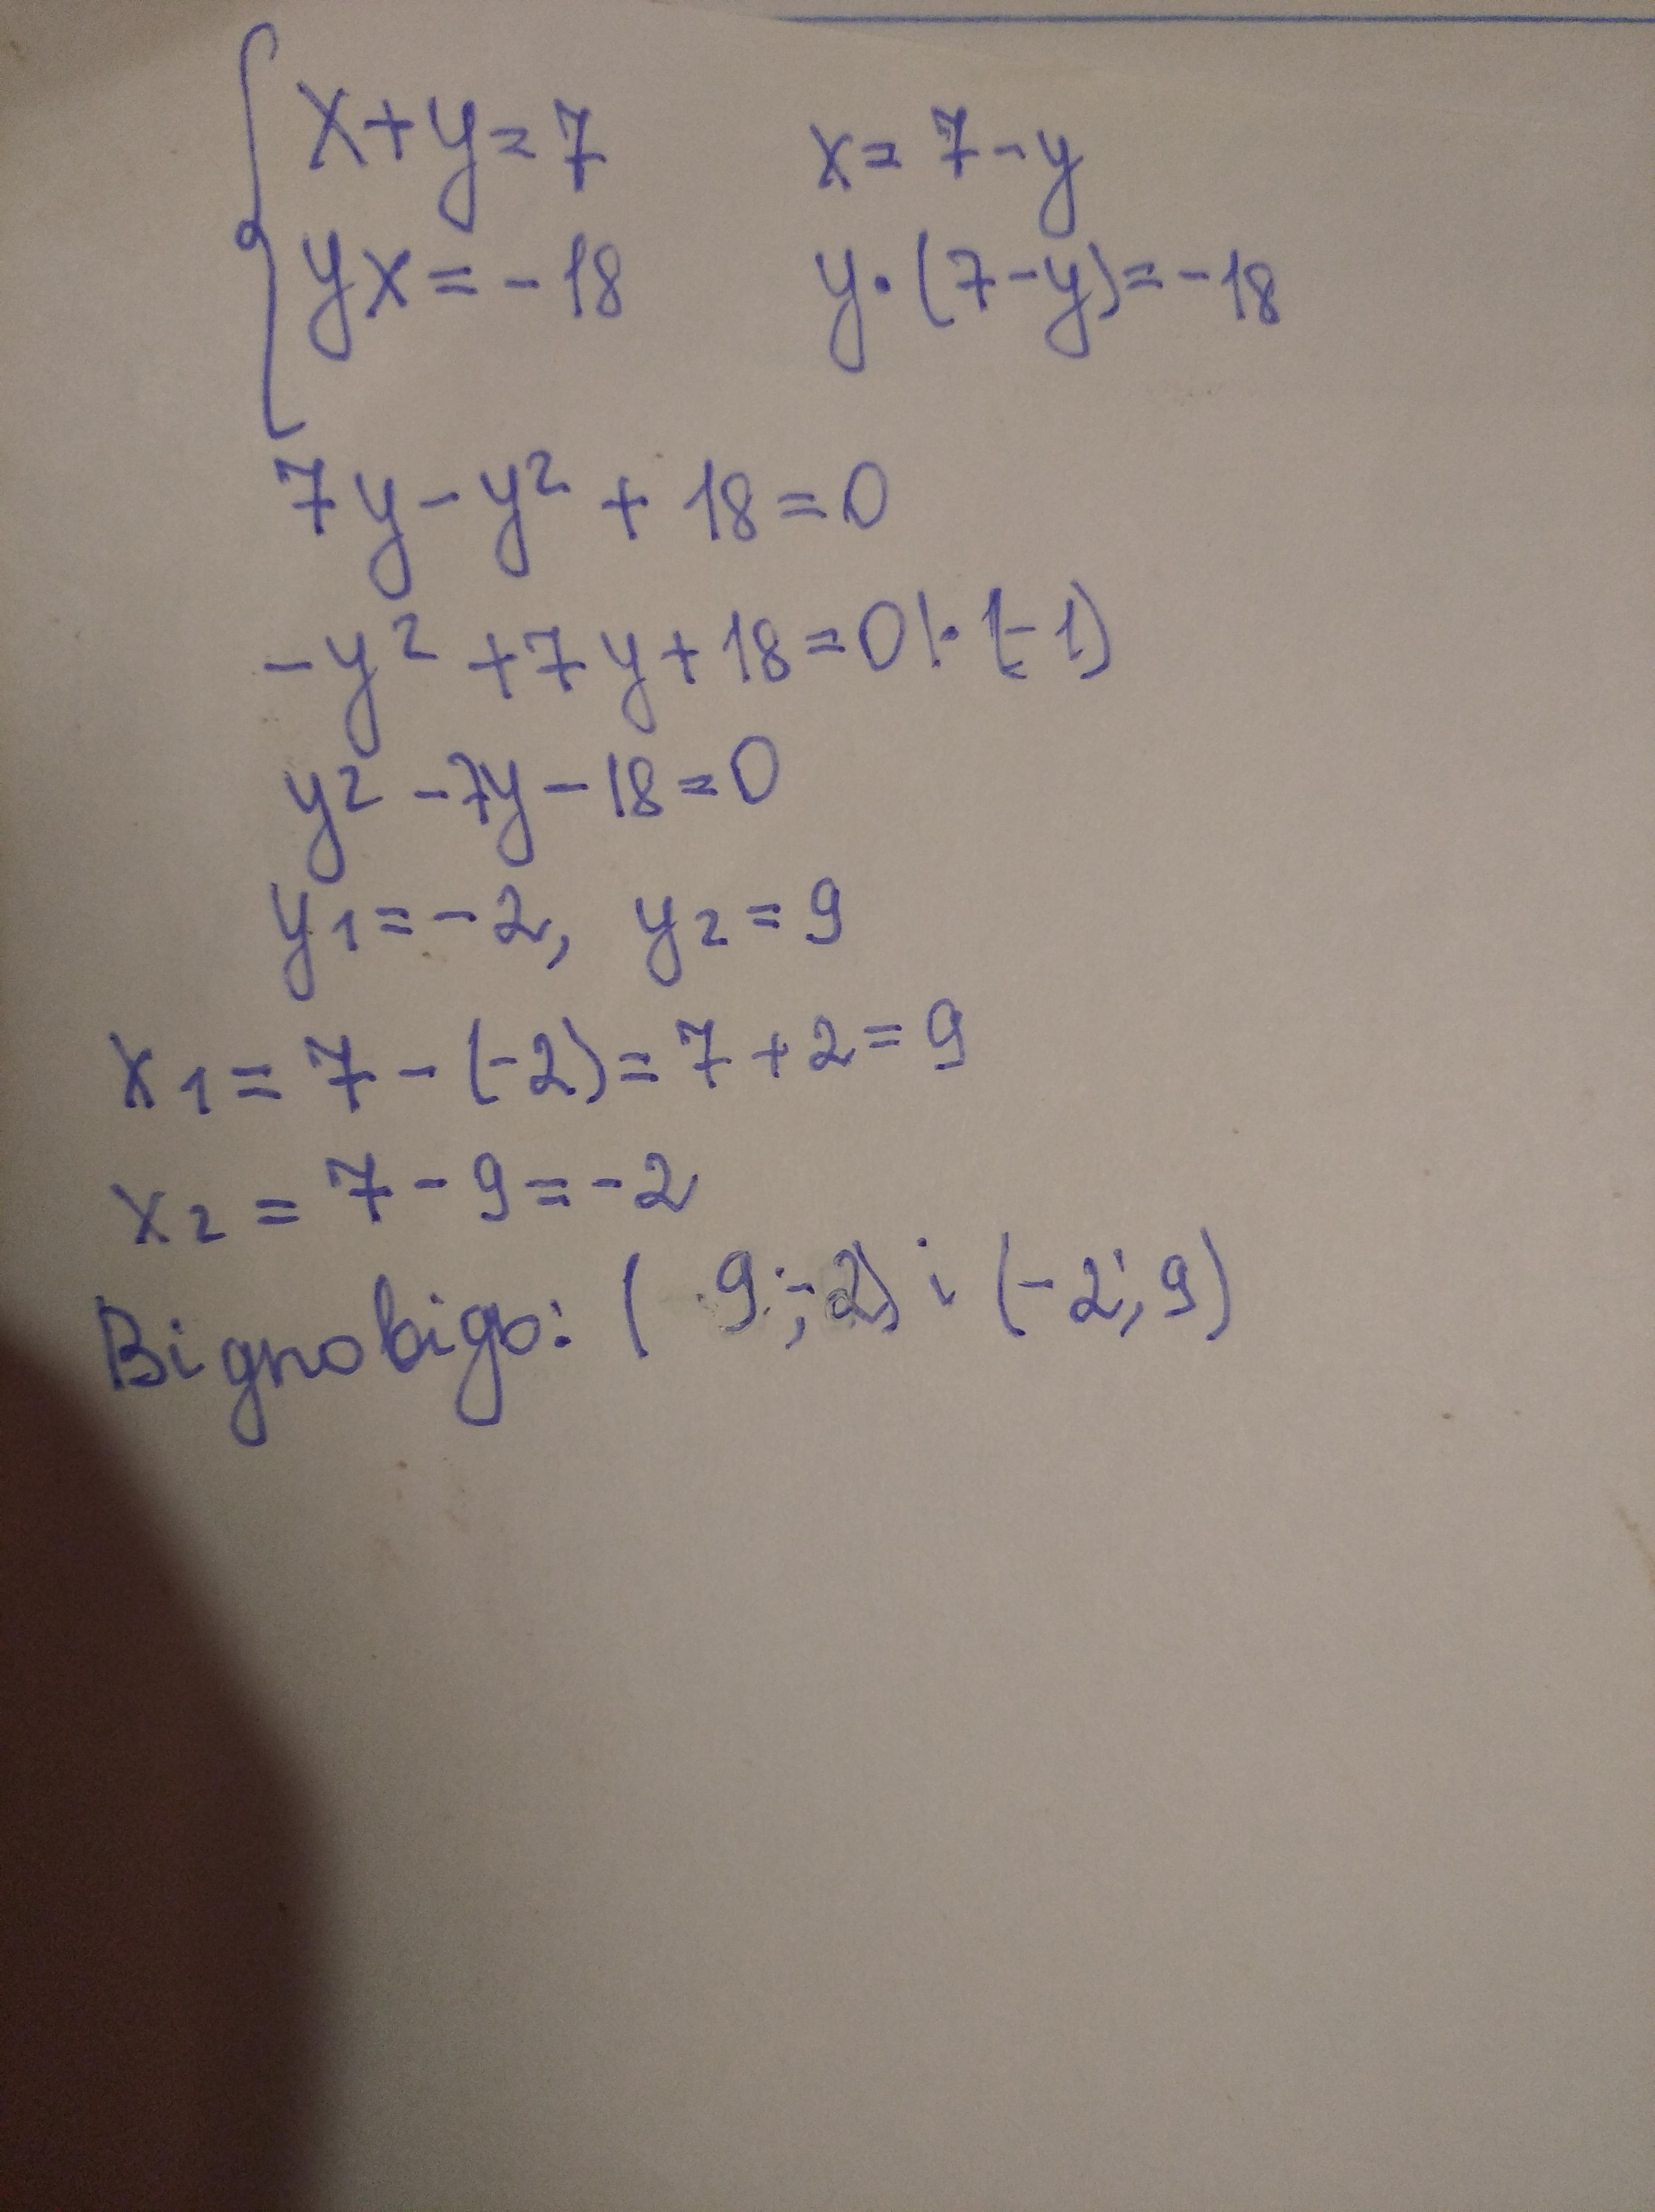 x+y=7 x=7-y
yx=-18 y·(7-y)=-18
7y-y²+18=0
-y²+7y+18=0|·(-1)
y²-7y-18=0
y₁=-2, y₂=9
x₁=7-(-2)=7+2=9
x₂=7-9=-2
Відповідь: (9;-2) і (-2;9)